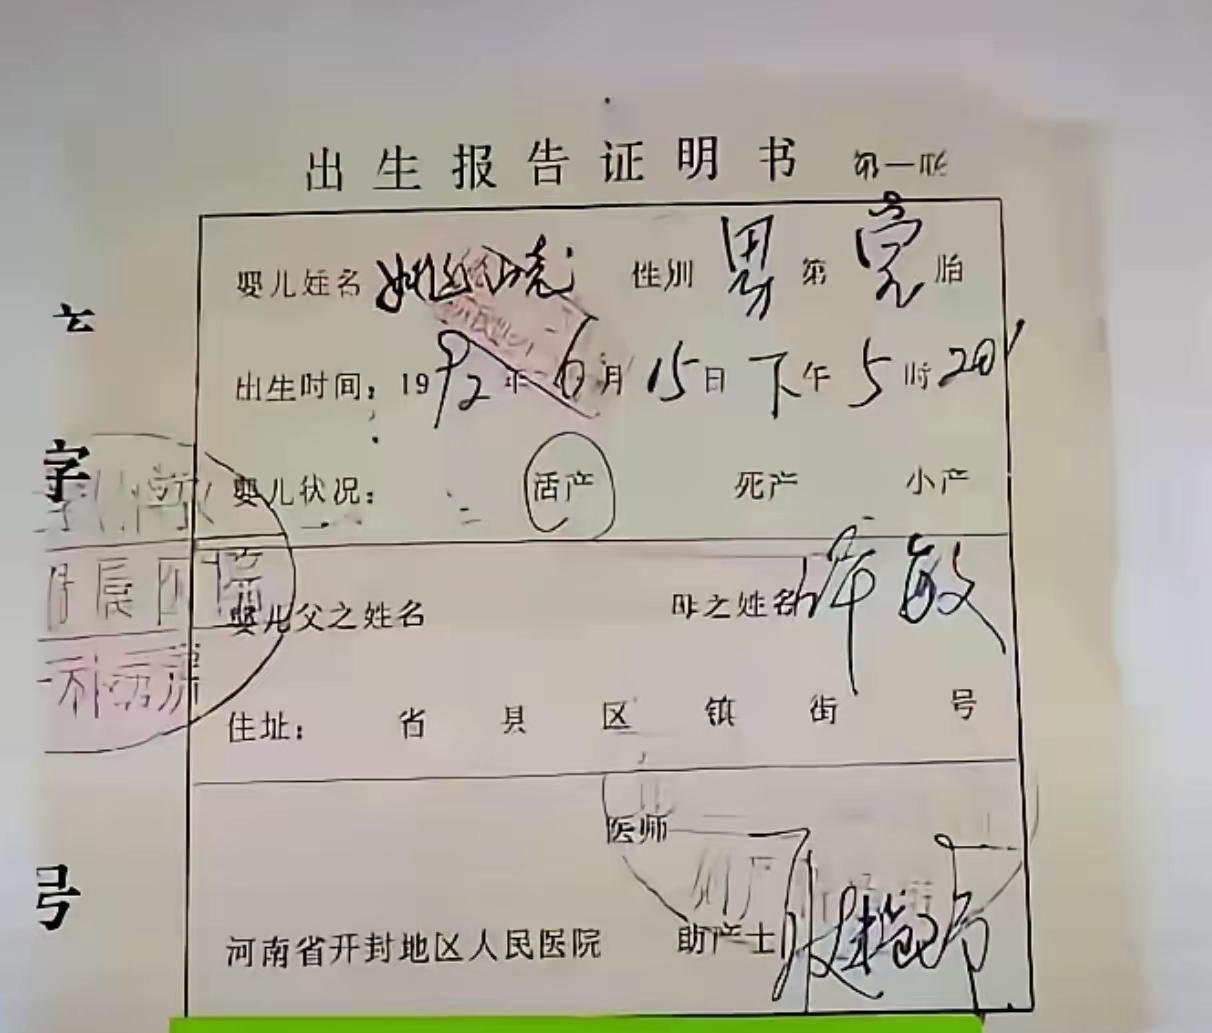 出生报告证明书 第一联
婴儿姓名 姚 性别 男 第 壹 胎
出生时间：1992年6月15日下午5时20'
字
婴儿状况： 活产 死产 小产
婴儿父之姓名 母之姓名 许敏
住址： 省 县 区 镇 街 号
医师
号
河南省开封地区人民医院 助产士